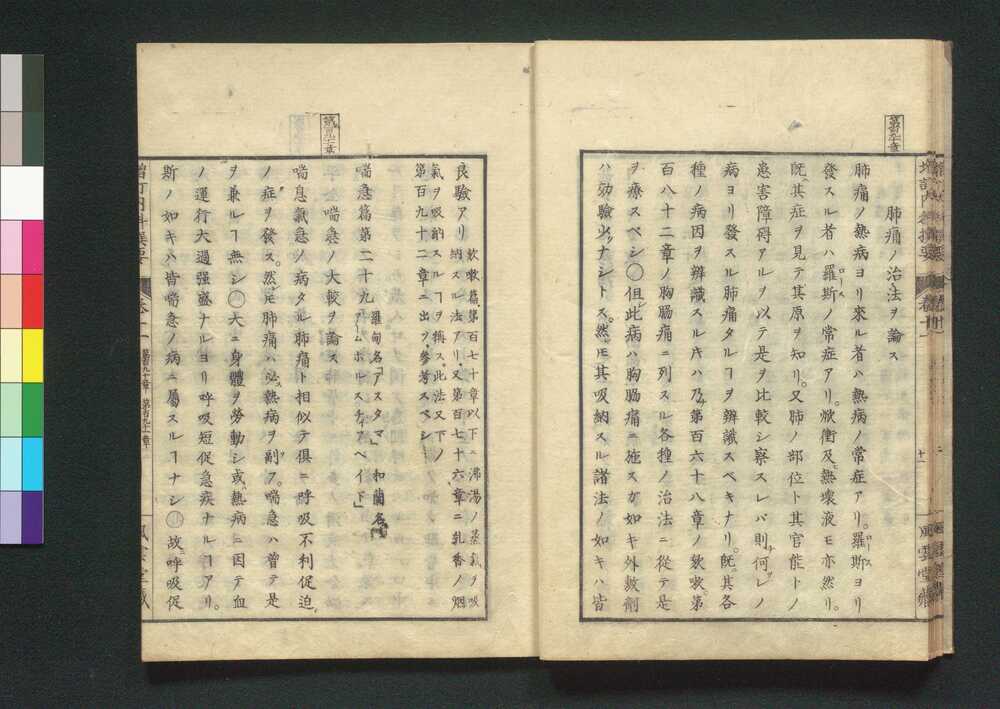 第百九十章
肺痛ノ治法ヲ論ス
肺痛ノ熱病ヨリ來ル者ハ熱病ノ常症アリ。羅斯ヨリ
發スル者ハ羅斯ノ常症アリ。焮衝及熱壞液モ亦然リ。
既其症ヲ見テ其原ヲ知リ。又肺ノ部位ト其官能トノ
患害障碍アルヲ以テ是ヲ比較シ察スレバ則何レノ
病ヨリ發スル肺痛タルヿヲ辨識スベキナリ。既其各
種ノ病因ヲ辨識スルキハ乃第百六十八章ノ欬嗽。第
百八十二章ノ胸膈痛ニ列スル各種ノ治法ニ從テ是
ヲ療スベシ○但此病ハ胸膈痛ニ施スガ如キ外敷劑
ハ効驗少ナシトス。然𪜈其吸納スル諸法ノ如キハ皆
良驗アリ 欬嗽篇第百七十章以下ニ沸湯ノ蒸氣ヲ吸
納スル法アリ又第百七十六章ニ乳香ノ烟
氣ヲ吸納スルヿヲ稱ス此法又下ノ
第百九十二章ニ出ヅ參考スベシ
喘急篇第二十九 羅甸名「アスタマ」 和蘭名
「アームボルスチフヘイド」
第百九十一章
喘急ノ大較ヲ論ス
喘息氣急ノ病タル肺痛ト相似テ俱ニ呼吸不利促迫
ノ症ヲ發ス。然𪜈肺痛ハ必熱病ヲ副フ。喘急ハ曾テ是
ヲ兼ルヿ無シ○大ニ身體ヲ勞動シ或熱病ニ因テ血
ノ運行大過強盛ナルヨリ呼吸短促急疾ナルヿアリ。
斯ノ如キハ皆喘急ノ病ニ屬スルヿナシ○故呼吸促
增訂內科撰要 卷十一 第百九十章 第百九十一章 風雲堂藏